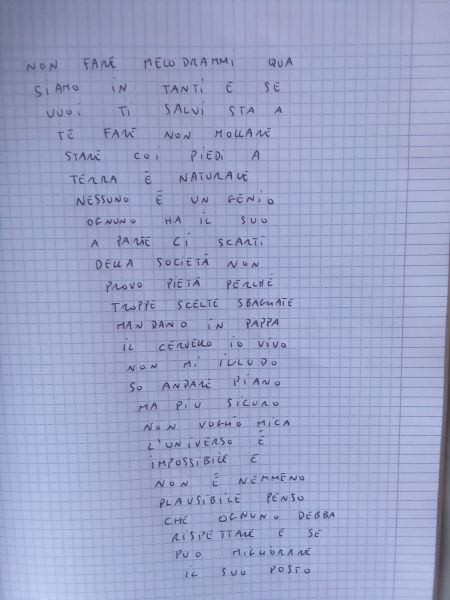 NON FARE MELODRAMMI QUA
SIAMO IN TANTI E SE
VUOI TI SALVI STA A
TE FARE NON MOLLARE
STARE COI PIEDI A
TERRA È NATURALE
NESSUNO È UN GENIO
OGNUNO HA IL SUO
A PARTE GLI SCARTI
DELLA SOCIETÀ NON
PROVO PIETÀ PERCHÉ
TROPPE SCELTE SBAGLIATE
MANDANO IN PAPPA
IL CERVELLO IO VIVO
NON MI ILLUDO
SO ANDARE PIANO
MA PIÙ SICURO
NON VOGLIO MICA
L'UNIVERSO È
IMPOSSIBILE E
NON È NEMMENO
PLAUSIBILE PENSO
CHE OGNUNO DEBBA
RISPETTARE E SE
PUÒ MIGLIORARE
IL SUO POSTO